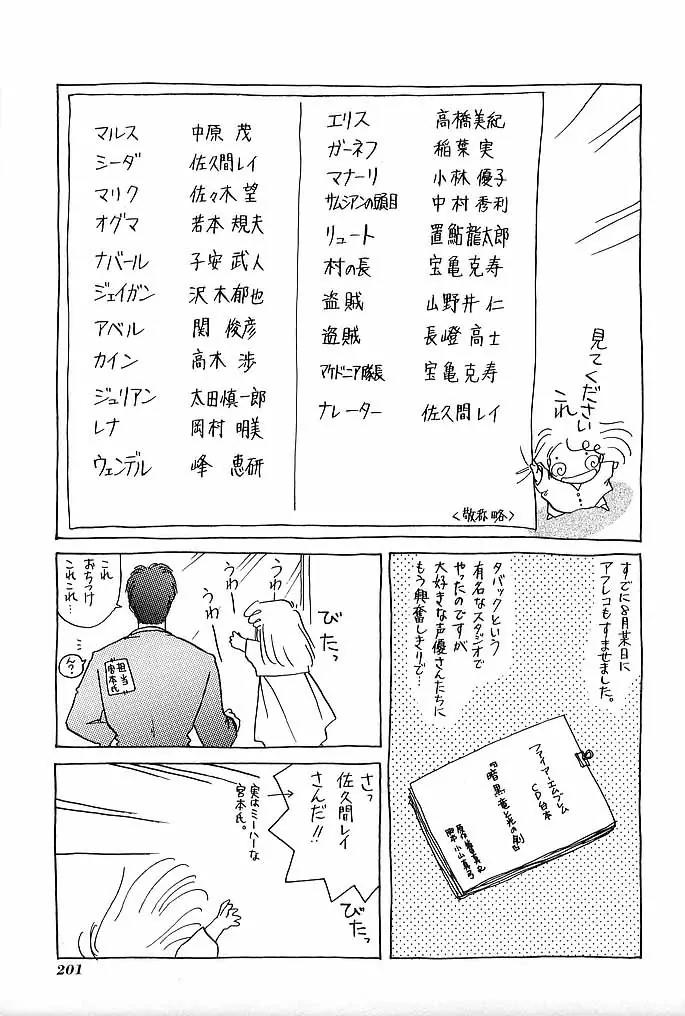 マルス 中原 茂
シーダ 佐久間レイ
マリク 佐々木 望
オグマ 若本 規夫
ナバール 子安 武人
ジェイガン 沢木郁也
アベル 関 俊彦
カイン 高木 渉
ジュリアン 太田慎一郎
レナ 岡村 明美
ウェンデル 峰 恵研
エリス 高橋美紀
ガーネフ 稲葉 実
マナーリ 小林 優子
サムシアンの頭目 中村 秀利
リュート 置鮎龍太郎
村の長 宝亀 克寿
盗賊 山野井 仁
盗賊 長嶝 高士
マケドニア隊長 宝亀 克寿
ナレーター 佐久間レイ
<敬称略>
見てください
これ
すでに8月某日に
アフレコもすませました。
タバックという
有名なスタジオで
やったのですが
大好きな声優さんたちに
もう興奮しきりで…
ファイアーエムブレム
CD台本
暗黒竜と光の剣
びたっ
うわー
うわー
うわー
これ
おちつけ
これこれ…
んっ
担当
宮本氏
さっ
佐久間レイ
さんだ!!
実はミーハーな
宮本氏。
びたっ
201